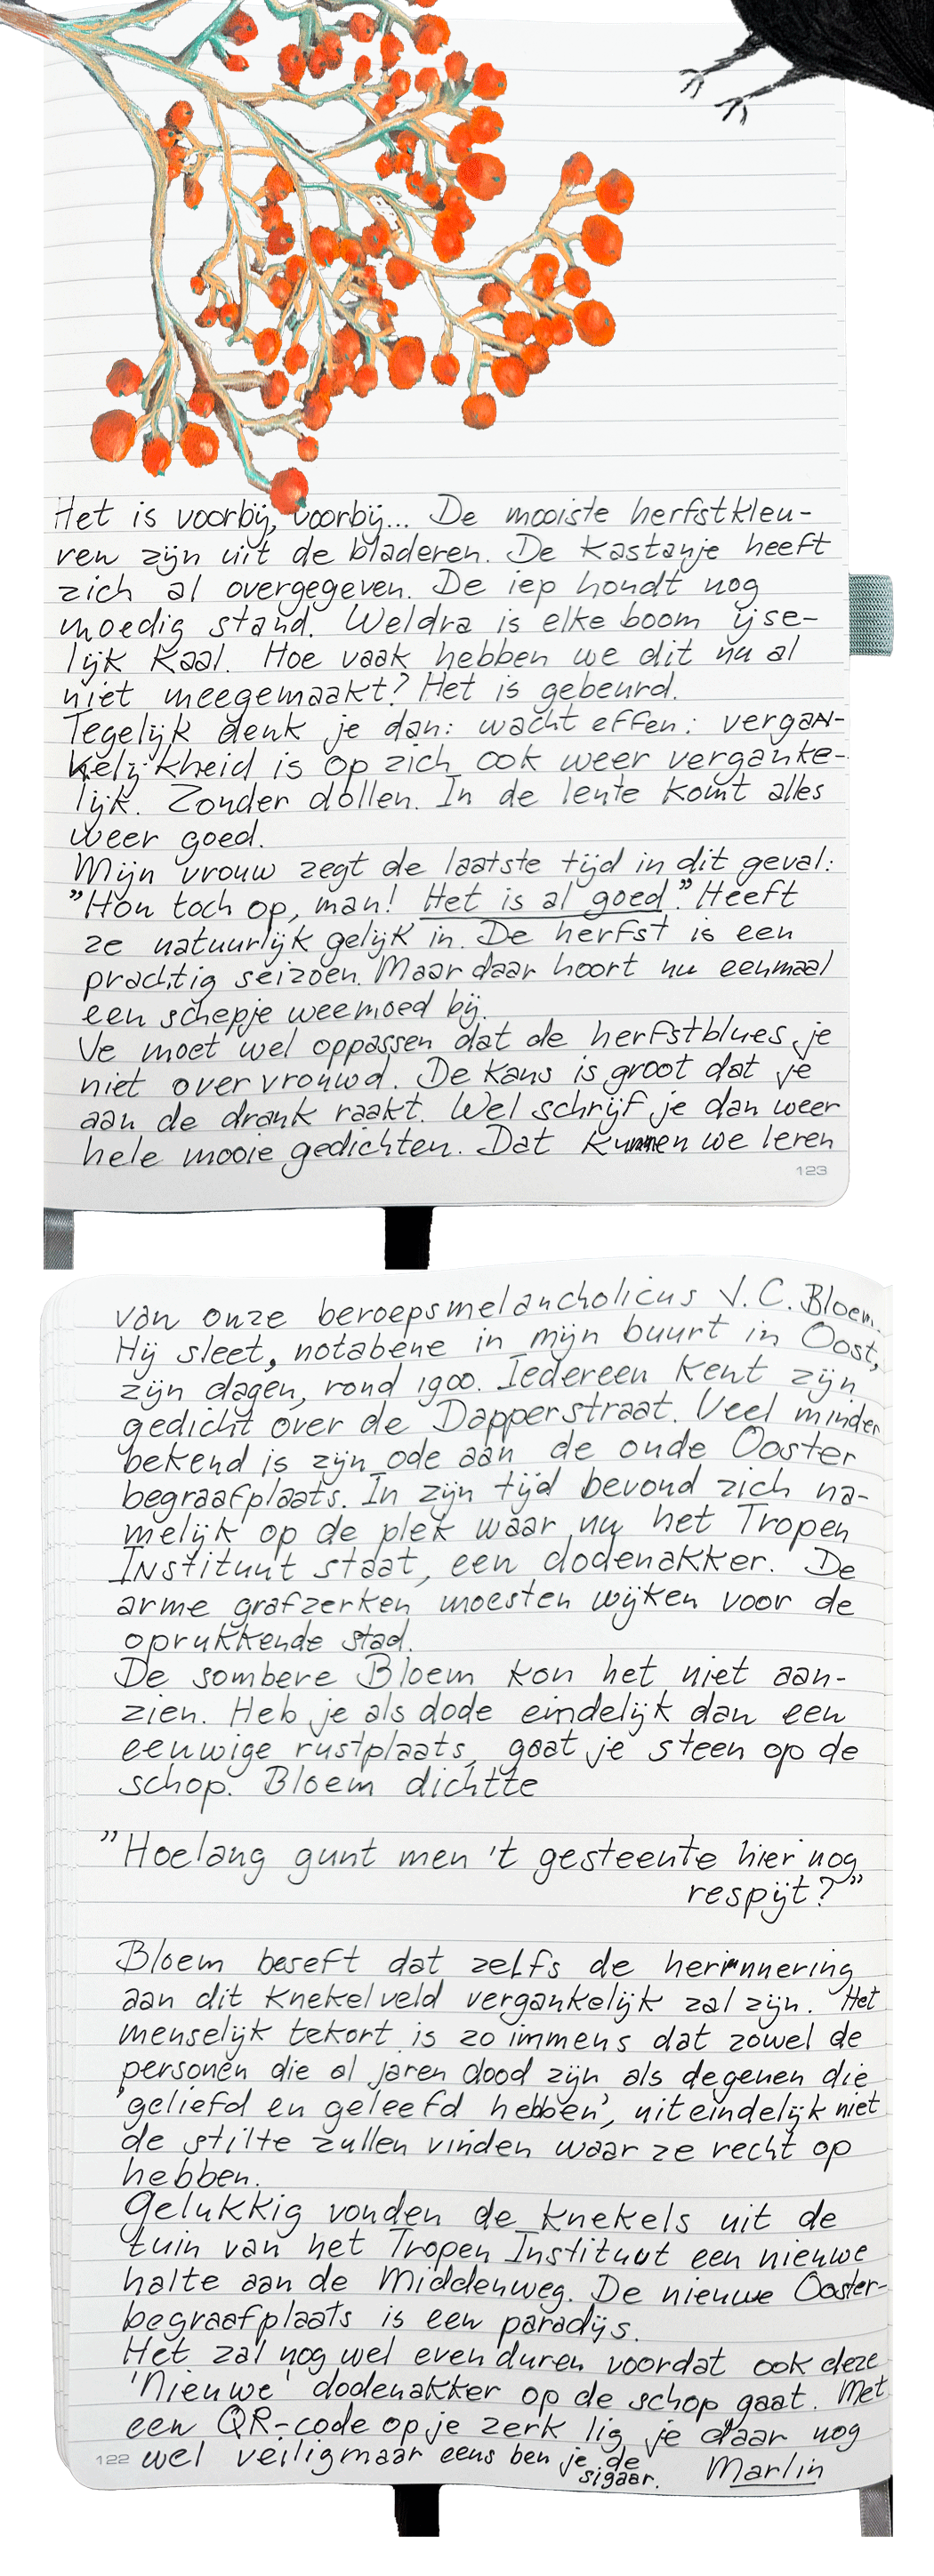 Het is voorbij, voorbij... De mooiste herfstkleu-
ren zijn uit de bladeren. De kastanje heeft
zich al overgegeven. De iep houdt nog
moedig stand. Weldra is elke boom ijse-
lijk kaal. Hoe vaak hebben we dit nu al
niet meegemaakt? Het is gebeurd.
Tegelijk denk je dan: wacht effen: vergan-
kelijkheid is op zich ook weer verganke-
lijk. Zonder dollen. In de lente komt alles
weer goed.
Mijn vrouw zegt de laatste tijd in dit geval:
"Hou toch op, man! Het is al goed". Heeft
ze natuurlijk gelijk in. De herfst is een
prachtig seizoen. Maar daar hoort nu eenmaal
een schepje weemoed bij.
Je moet wel oppassen dat de herfstblues je
niet overvrouwd. De kans is groot dat je
aan de drank raakt. Wel schrijf je dan weer
hele mooie gedichten. Dat kunnen we leren
123
van onze beroepsmelancholicus J.C. Bloem.
Hij sleet, notabene in mijn buurt in Oost,
zijn dagen, rond 1900. Iedereen kent zijn
gedicht over de Dapperstraat. Veel minder
bekend is zijn ode aan de oude Ooster
begraafplaats. In zijn tijd bevond zich na-
melijk op de plek waar nu het Tropen
Instituut staat, een dodenakker. De
arme grafzerken moesten wijken voor de
oprukkende stad.
De sombere Bloem kon het niet aan-
zien. Heb je als dode eindelijk dan een
eeuwige rustplaats, gaat je steen op de
schop. Bloem dichtte
"Hoelang gunt men 't gesteente hier nog
respijt?"
Bloem beseft dat zelfs de herinnering
aan dit knekelveld vergankelijk zal zijn. Het
menselijk tekort is zo immens dat zowel de
personen die al jaren dood zijn als degenen die
'geliefd en geleefd hebben', uiteindelijk niet
de stilte zullen vinden waar ze recht op
hebben.
Gelukkig vonden de knekels uit de
tuin van het Tropen Instituut een nieuwe
halte aan de Middenweg. De nieuwe Ooster-
begraafplaats is een paradijs.
Het zal nog wel even duren voordat ook deze
'Nieuwe' dodenakker op de schop gaat. Met
een QR-code op je zerk lig je daar nog
122 wel veilig maar eens ben je de
sigaar. Marlin